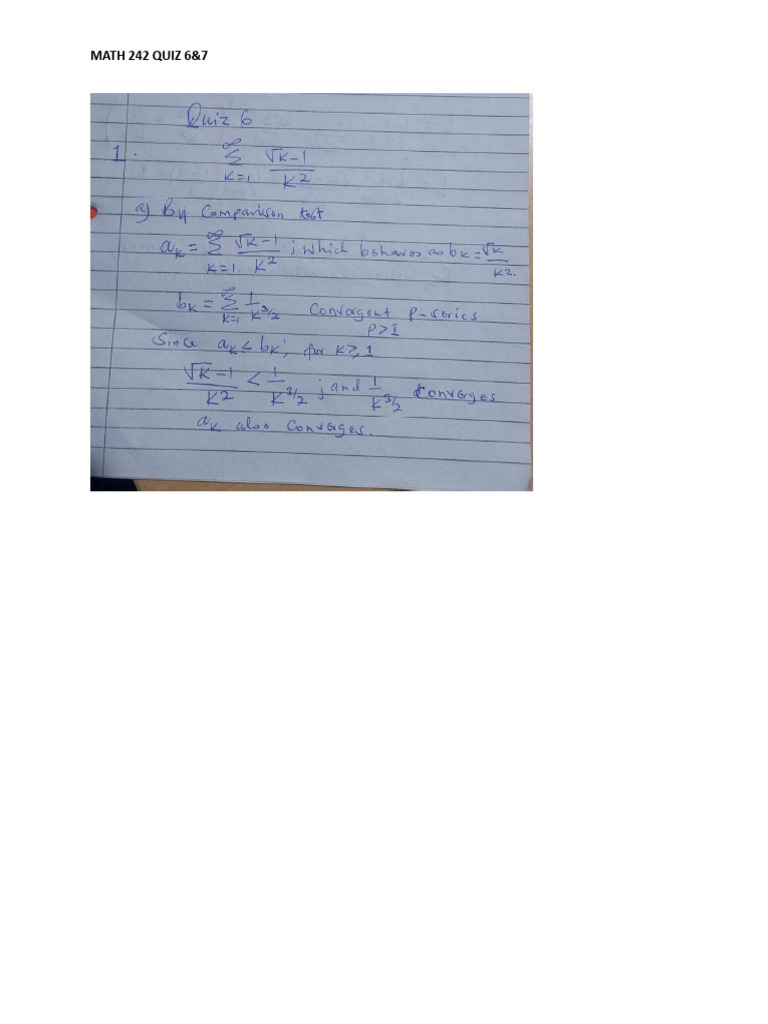 MATH 242 QUIZ 6&7
Quiz 6
1. ∞ Σ k=1 √k-1 / k²
a) By Comparison test
aₖ = ∞ Σ k=1 √k-1 / k² ; which behaves as bₖ = √k / k².
bₖ = ∞ Σ k=1 1 / k^3/2 Convergent P-series
P>1
Since aₖ ≤ bₖ ; for k ≥ 1
√k-1 / k² < 1 / k^3/2 ; and 1 / k^3/2 Converges
aₖ also Converges.